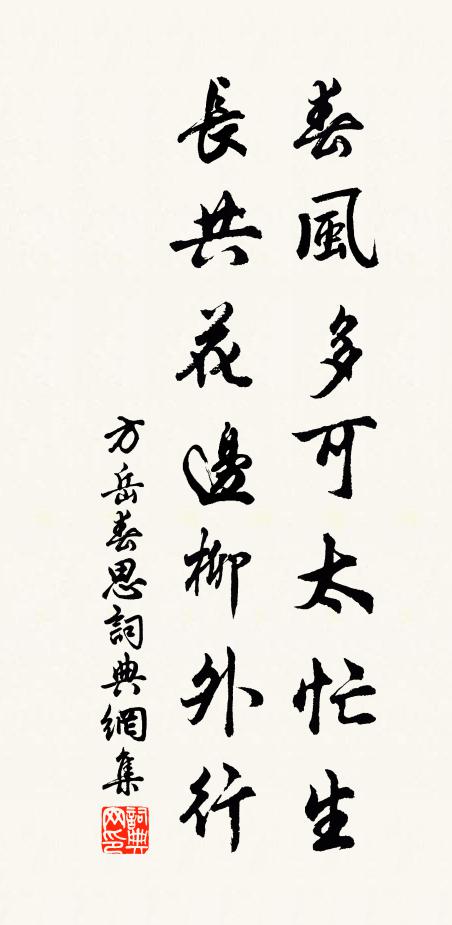 春風多可太忙生
長共花邊柳外行
方岳春思詞典網集
詞典網印